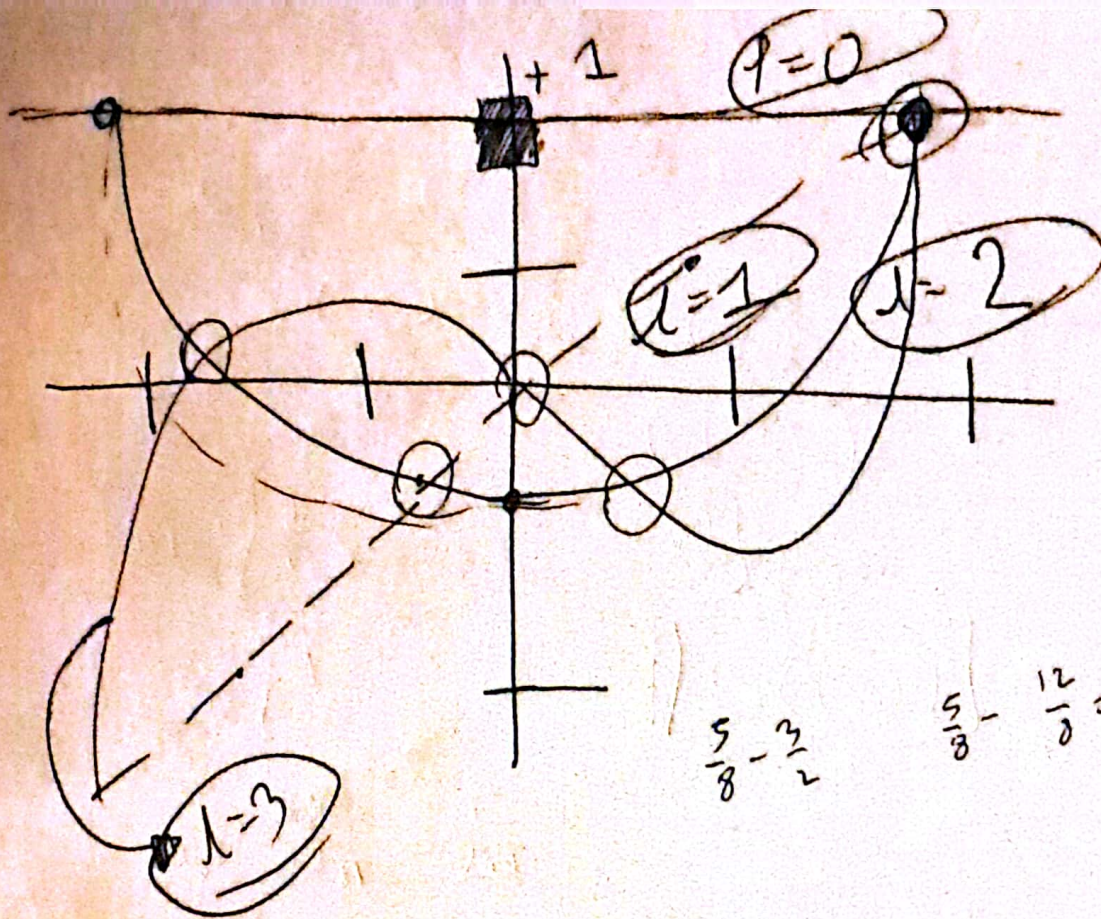 + 1
l=0
l=1
l=2
l=3
5/8 - 3/2
5/8 - 12/8 =